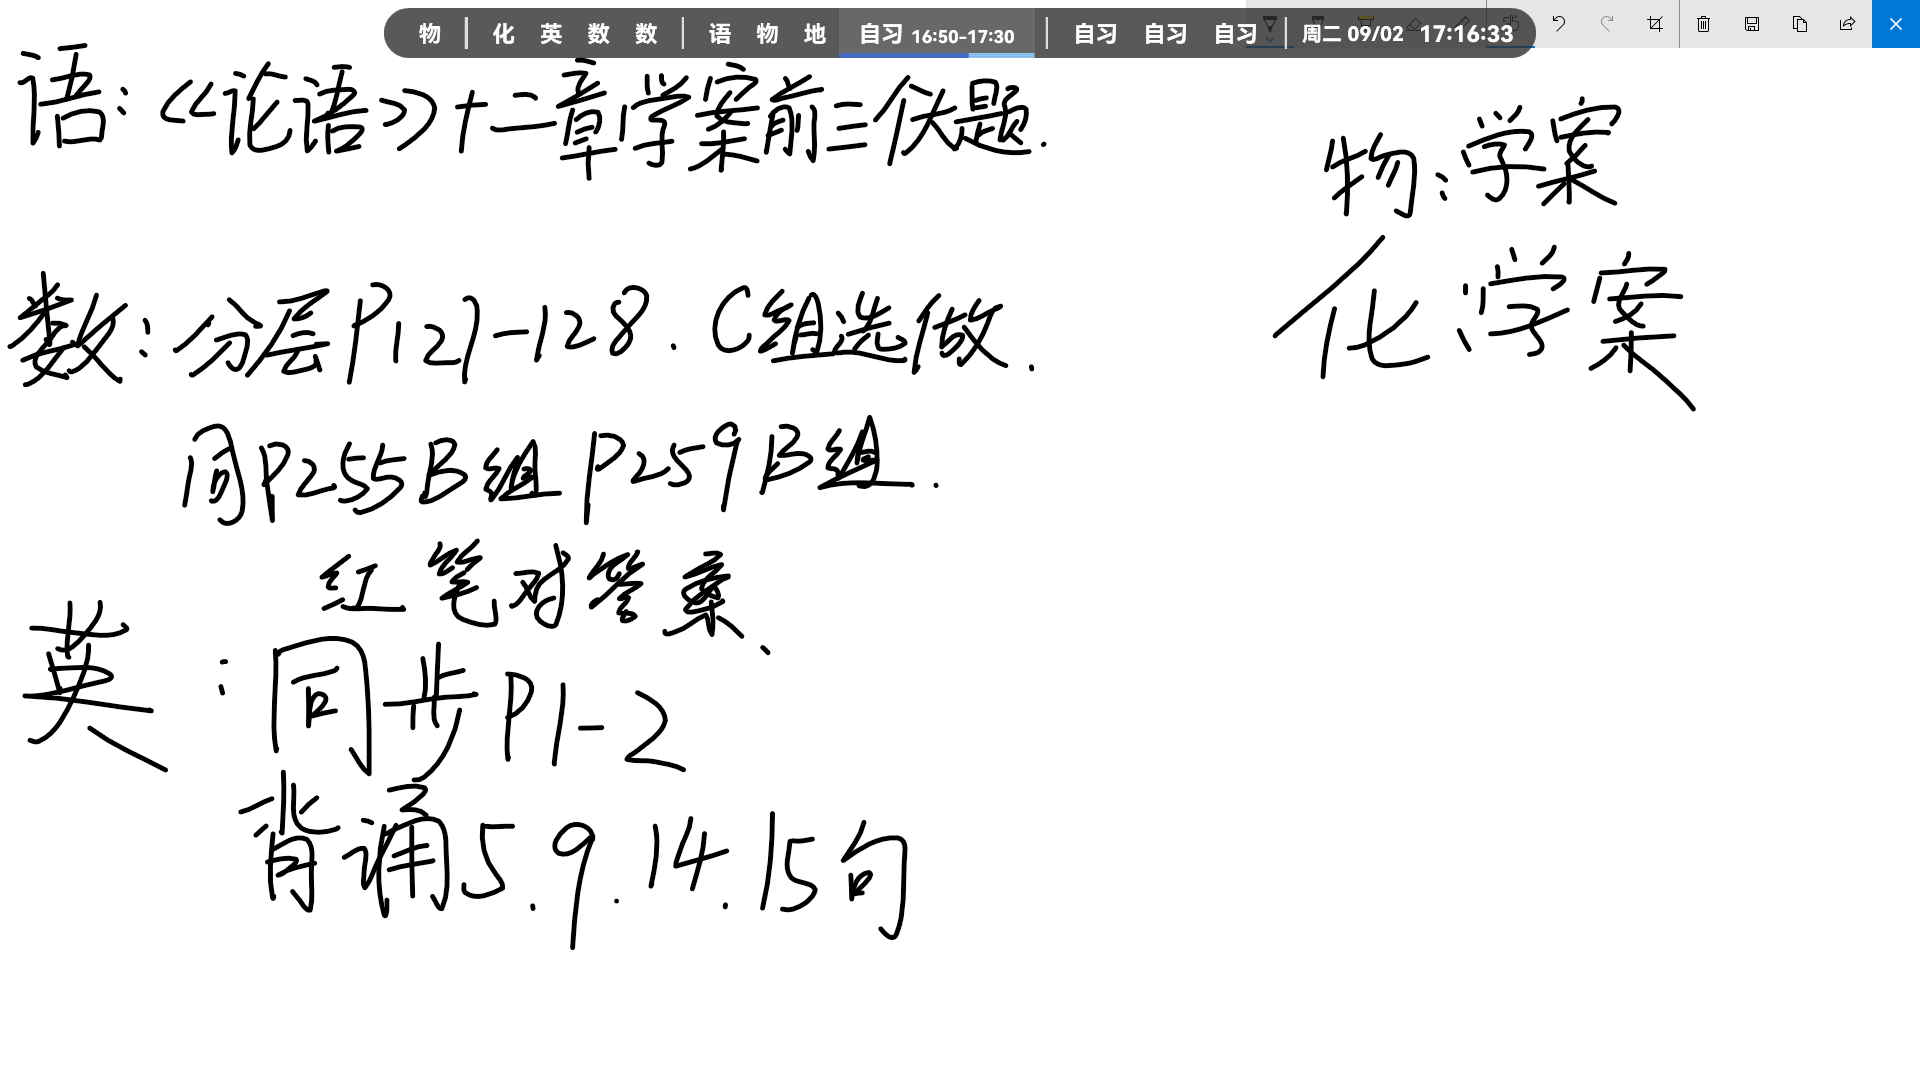 物 | 化 英 数 数 | 语 物 地 自习 16:50-17:30 | 自习 自习 自习 | 周二 09/02 17:16:33
语：《论语》十二章学案前三伏题.
物：学案
化：学案
数：分层P127-128. C组选做.
同P255B组 P259B组.
红笔对答案、
英：同步P1-2
背诵5.9.14.15句